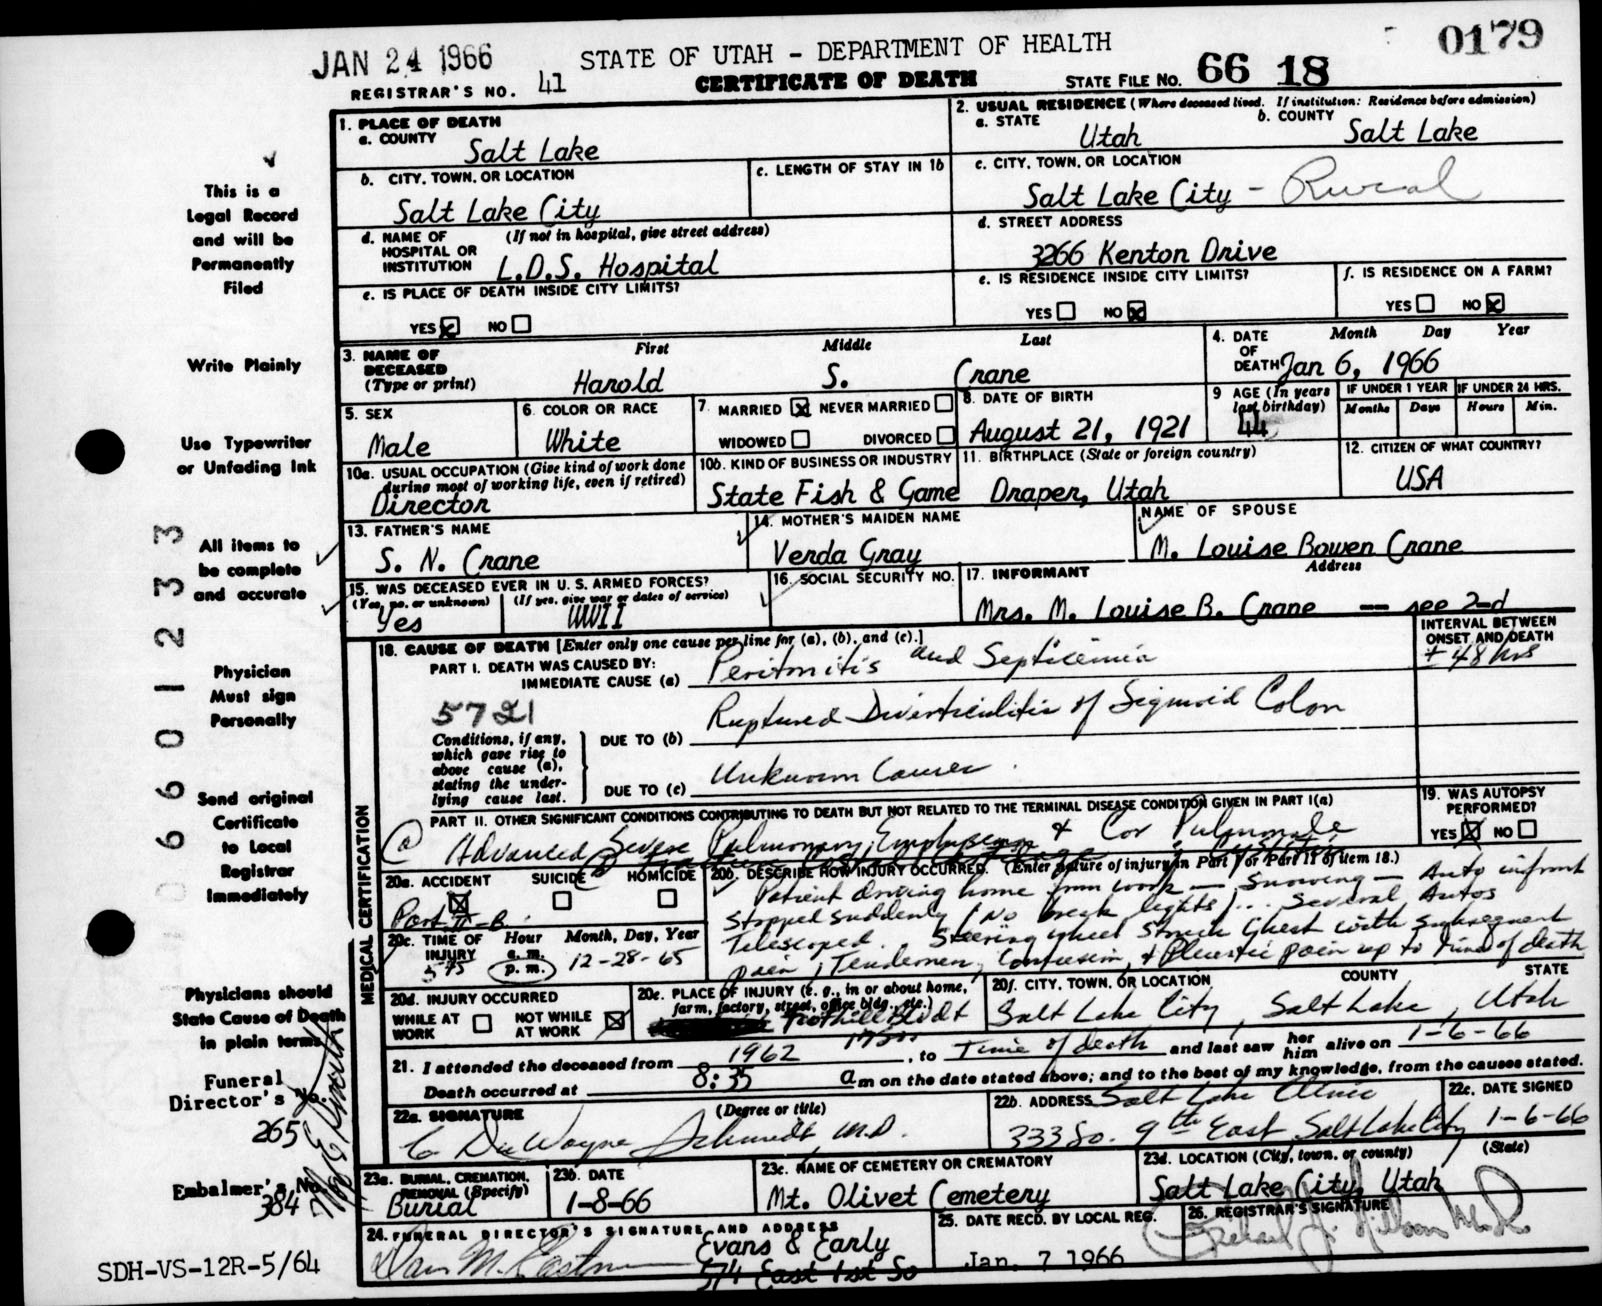 JAN 24 1966
STATE OF UTAH - DEPARTMENT OF HEALTH
0179
REGISTRAR'S NO. 41
CERTIFICATE OF DEATH
STATE FILE NO. 66 18
1. PLACE OF DEATH
a. COUNTY
Salt Lake
2. USUAL RESIDENCE (Where deceased lived. If institution: Residence before admission)
a. STATE
Utah
b. COUNTY
Salt Lake
b. CITY, TOWN, OR LOCATION
Salt Lake City
c. LENGTH OF STAY IN 1b
c. CITY, TOWN, OR LOCATION
Salt Lake City - Rural
d. NAME OF HOSPITAL OR INSTITUTION
(If not in hospital, give street address)
L.D.S. Hospital
d. STREET ADDRESS
3266 Kenton Drive
e. IS PLACE OF DEATH INSIDE CITY LIMITS?
YES NO
e. IS RESIDENCE INSIDE CITY LIMITS?
YES NO
f. IS RESIDENCE ON A FARM?
YES NO
3. NAME OF DECEASED
(Type or print)
First Middle Last
Harold S. Crane
4. DATE OF DEATH
Month Day Year
Jan 6, 1966
5. SEX
Male
6. COLOR OR RACE
White
7. MARRIED NEVER MARRIED
WIDOWED DIVORCED
8. DATE OF BIRTH
August 21, 1921
9 AGE (In years last birthday)
44
IF UNDER 1 YEAR
Months Days
IF UNDER 24 HRS.
Hours Min.
10a. USUAL OCCUPATION (Give kind of work done during most of working life, even if retired)
Director
10b. KIND OF BUSINESS OR INDUSTRY
State Fish & Game
11. BIRTHPLACE (State or foreign country)
Draper, Utah
12. CITIZEN OF WHAT COUNTRY?
USA
13. FATHER'S NAME
S. N. Crane
14. MOTHER'S MAIDEN NAME
Verda Gray
NAME OF SPOUSE
M. Louise Bowen Crane
15. WAS DECEASED EVER IN U. S. ARMED FORCES?
(Yes, no, or unknown) (If yes, give war or dates of service)
Yes WWII
16. SOCIAL SECURITY NO.
17. INFORMANT Address
Mrs. M. Louise B. Crane — see 2-d
18. CAUSE OF DEATH [Enter only one cause per line for (a), (b), and (c).]
INTERVAL BETWEEN ONSET AND DEATH
PART I. DEATH WAS CAUSED BY:
IMMEDIATE CAUSE (a) Peritonitis and Septicemia
± 48 hrs
5721
Conditions, if any, which gave rise to above cause (a), stating the underlying cause last.
DUE TO (b) Ruptured Diverticulitis of Sigmoid Colon
DUE TO (c) Unknown Causes
PART II. OTHER SIGNIFICANT CONDITIONS CONTRIBUTING TO DEATH BUT NOT RELATED TO THE TERMINAL DISEASE CONDITION GIVEN IN PART I(a)
Advanced Severe Pulmonary Emphysema & Cor Pulmonale
19. WAS AUTOPSY PERFORMED?
YES NO
20a. ACCIDENT SUICIDE HOMICIDE
Part II-B.
20b. DESCRIBE HOW INJURY OCCURRED. (Enter nature of injury in Part I or Part II of item 18.)
Patient driving home from work — Snowing — Auto infront
stopped suddenly (No break lights)... Several Autos
Telescoped. Steering wheel struck Chest with subsequent
pain, Tenderness, Contusion, & Pleuritic pain up to time of death
20c. TIME OF INJURY
Hour Month, Day, Year
a. m.
p. m.
545 12-28-65
20d. INJURY OCCURRED
WHILE AT WORK NOT WHILE AT WORK
20e. PLACE OF INJURY (e. g., in or about home, farm, factory, street, office bldg., etc.)
Foothill Blvd
20f. CITY, TOWN, OR LOCATION COUNTY STATE
Salt Lake City, Salt Lake, Utah
21. I attended the deceased from 1962, to Time of death and last saw her him alive on 1-6-66
Death occurred at 8:35 am on the date stated above; and to the best of my knowledge, from the causes stated.
22a. SIGNATURE (Degree or title)
C DuWayne Schmidt, M.D.
22b. ADDRESS Salt Lake Clinic
333 So. 9th East Salt Lake City
22c. DATE SIGNED
1-6-66
23a. BURIAL, CREMATION, REMOVAL (Specify)
Burial
23b. DATE
1-8-66
23c. NAME OF CEMETERY OR CREMATORY
Mt. Olivet Cemetery
23d. LOCATION (City, town, or county) (State)
Salt Lake City, Utah
24. FUNERAL DIRECTOR'S SIGNATURE AND ADDRESS
Evans & Early
574 East 1st So
25. DATE RECD. BY LOCAL REG.
Jan. 7 1966
26. REGISTRAR'S SIGNATURE
MEDICAL CERTIFICATION
This is a
Legal Record
and will be
Permanently
Filed
Write Plainly
Use Typewriter
or Unfading Ink
All items to
be complete
and accurate
Physician
Must sign
Personally
Send original
Certificate
to Local
Registrar
Immediately
Physicians should
State Cause of Death
in plain terms
Funeral
Director's No.
265
Embalmer's No.
384
SDH-VS-12R-5/64